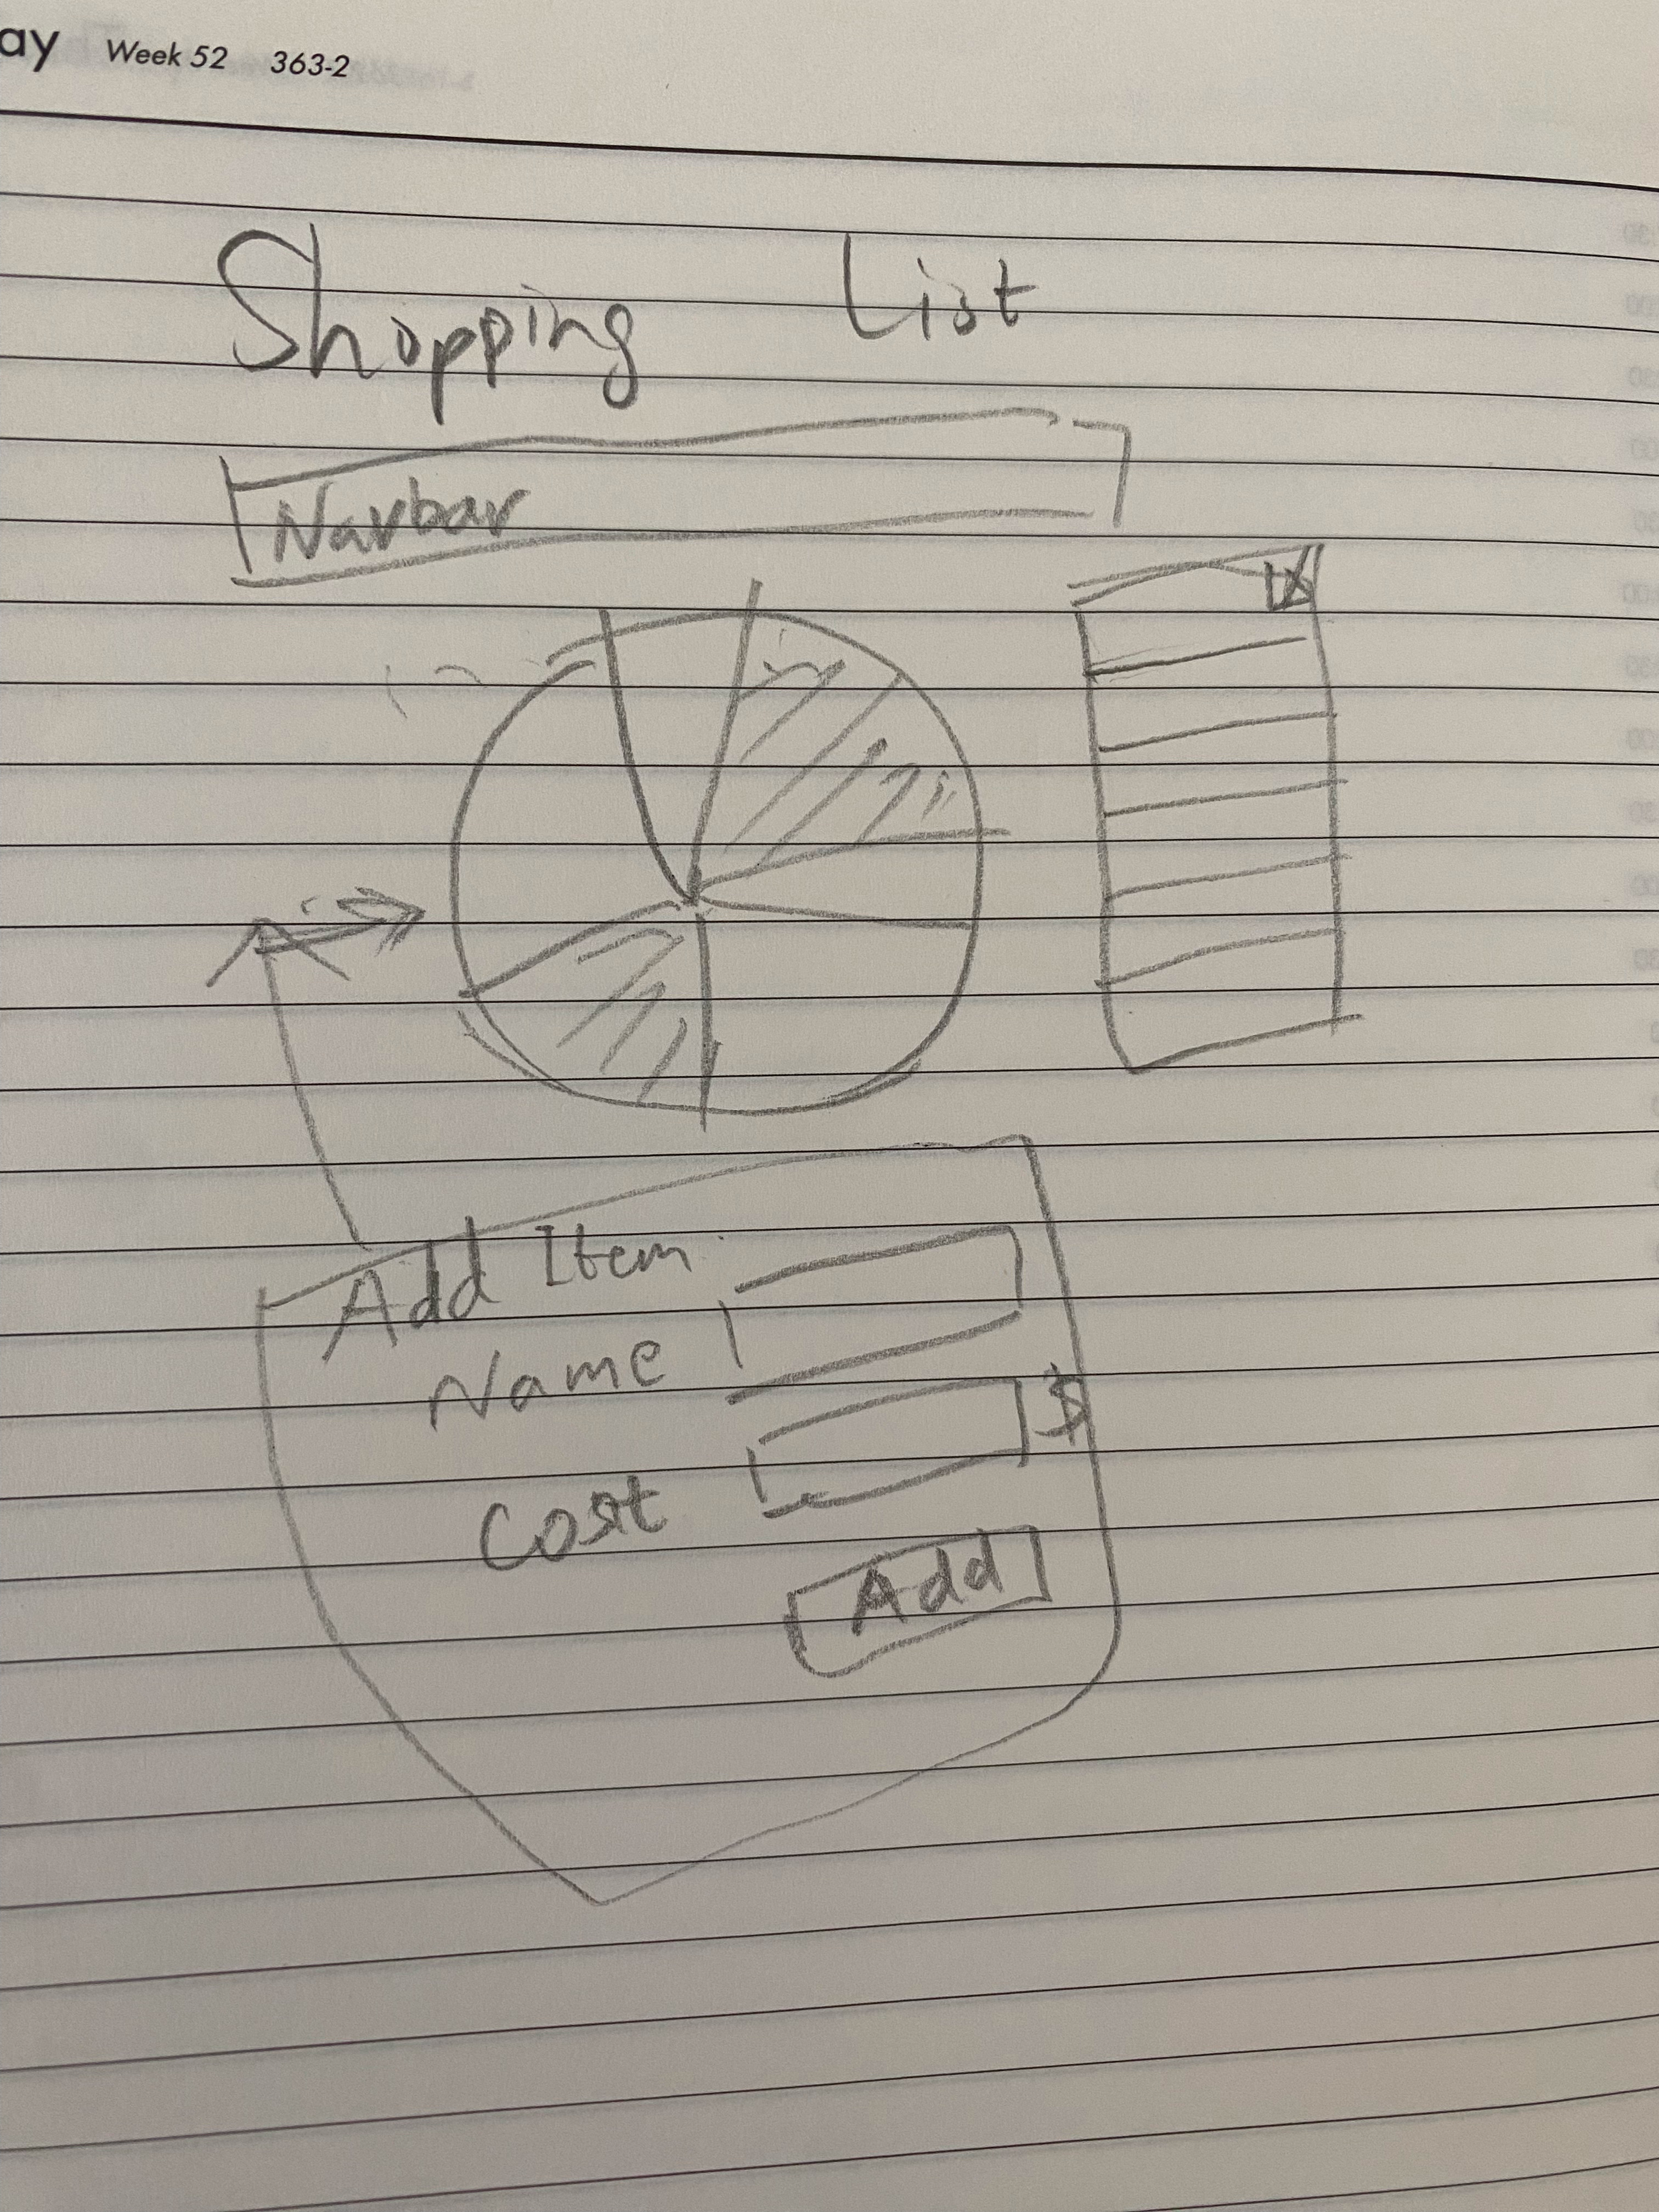 ay Week 52 363-2
Shopping List
Navbar
X
Add Item
Name
Cost $
Add